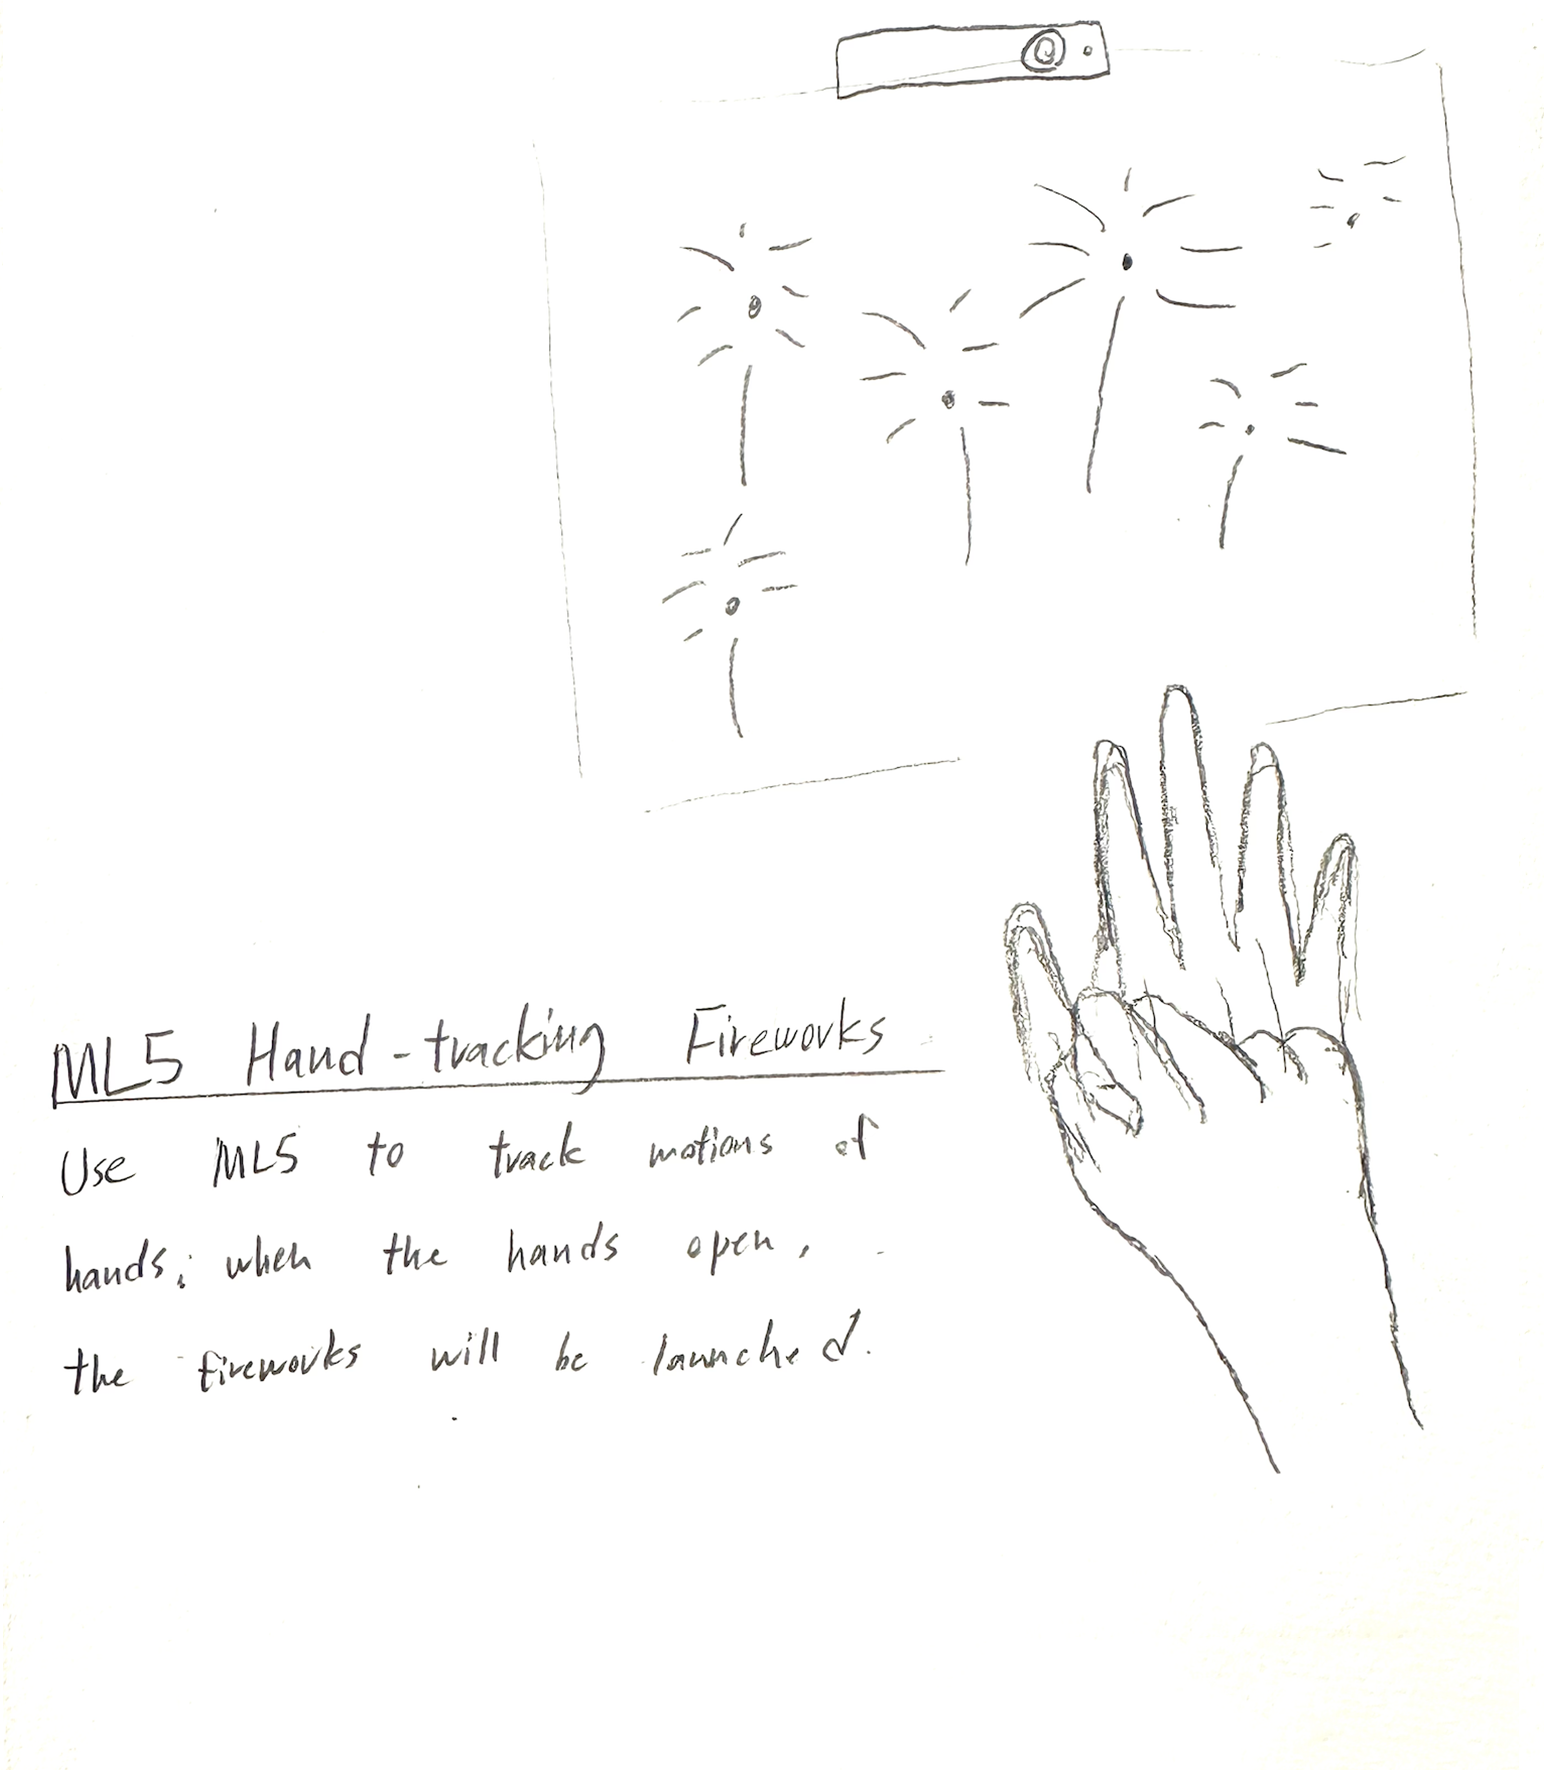 ML5 Hand-tracking Fireworks
Use ML5 to track motions of
hands; when the hands open,
the fireworks will be launched.